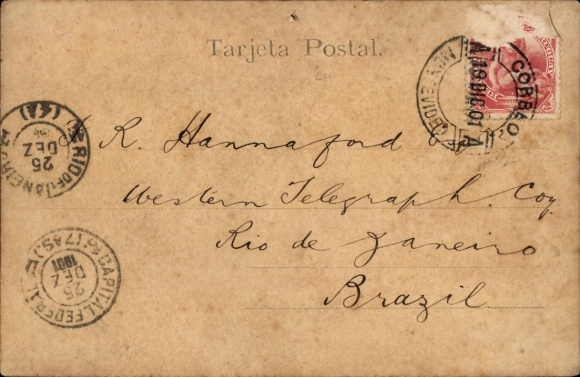 Tarjeta Postal.
CORREO
MONTEVIDEO
18 DIC 01
A
R. Hannaford
Western Telegraph. Coy.
Rio de Janeiro
Brazil.
RIO DE JANEIRO
25
DEZ
CAPITAL FEDERAL
25
DEZ
1901